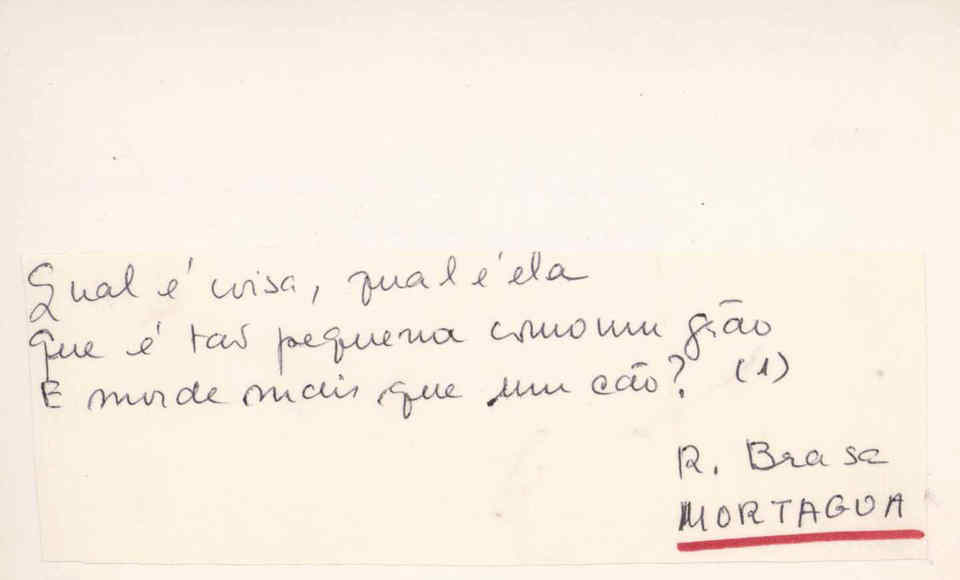 Qual é coisa, qual é ela
que é tão pequena como um grão
E morde mais que um cão? (1)
R. Brasa
MORTAGUA